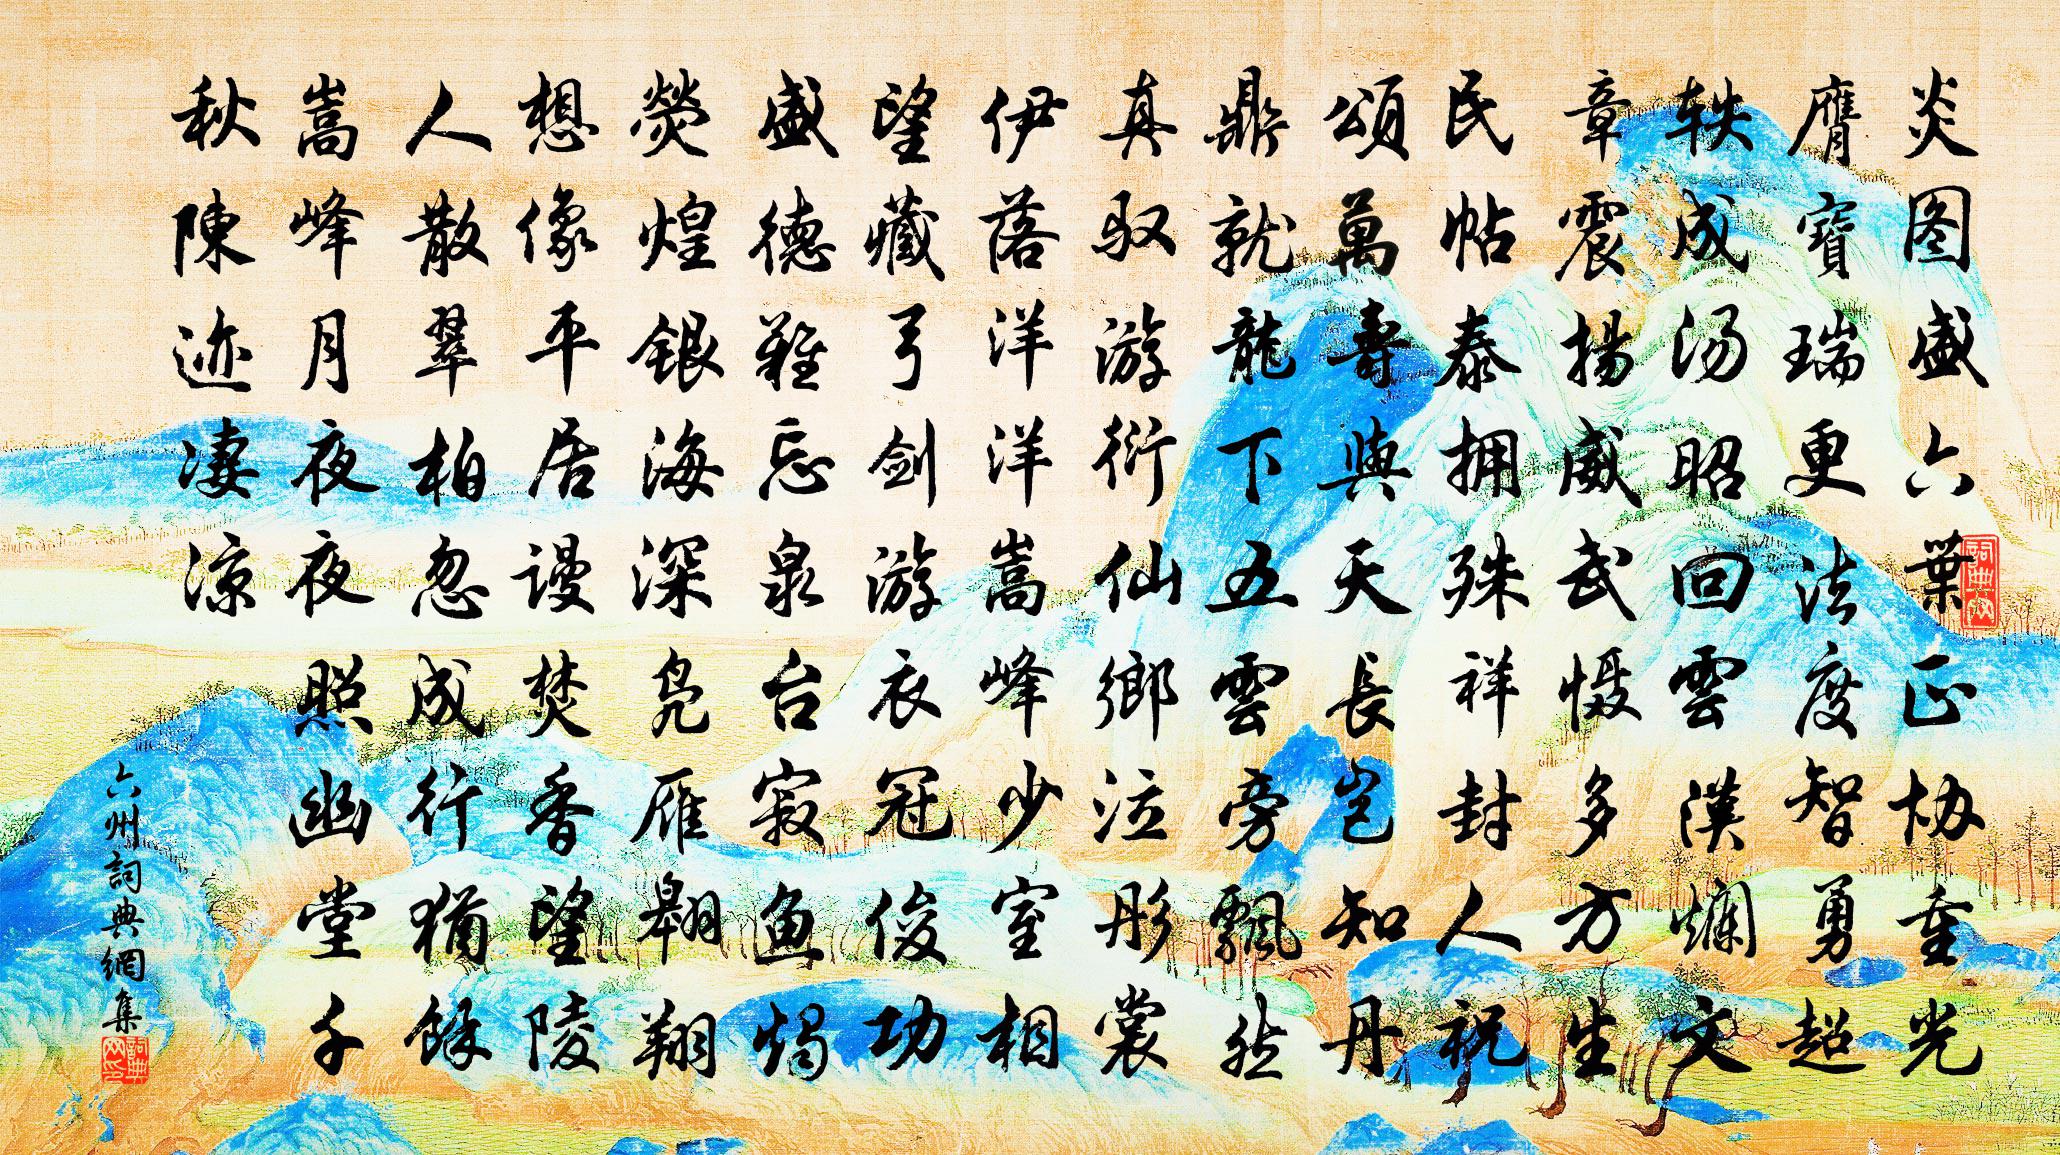 炎图盛六葉正协重光
膺寶瑞更法度智勇超
轶成汤昭回雲漢爛文
章震揚威武慑多方生
民帖泰拥殊祥封人祝
頌萬壽與天長岂知丹
鼎就龍下五雲旁飄然
真驭游衍仙鄉泣彤裳
伊落洋洋嵩峰少室相
望藏弓剑游衣冠俊功
盛德難忘泉台寂魚燭
熒煌銀海深凫雁翱翔
想像平居谩焚香望陵
人散翠柏忽成行猶餘
嵩峰月夜夜照幽堂千
秋陳迹凄凉
六州詞典網集